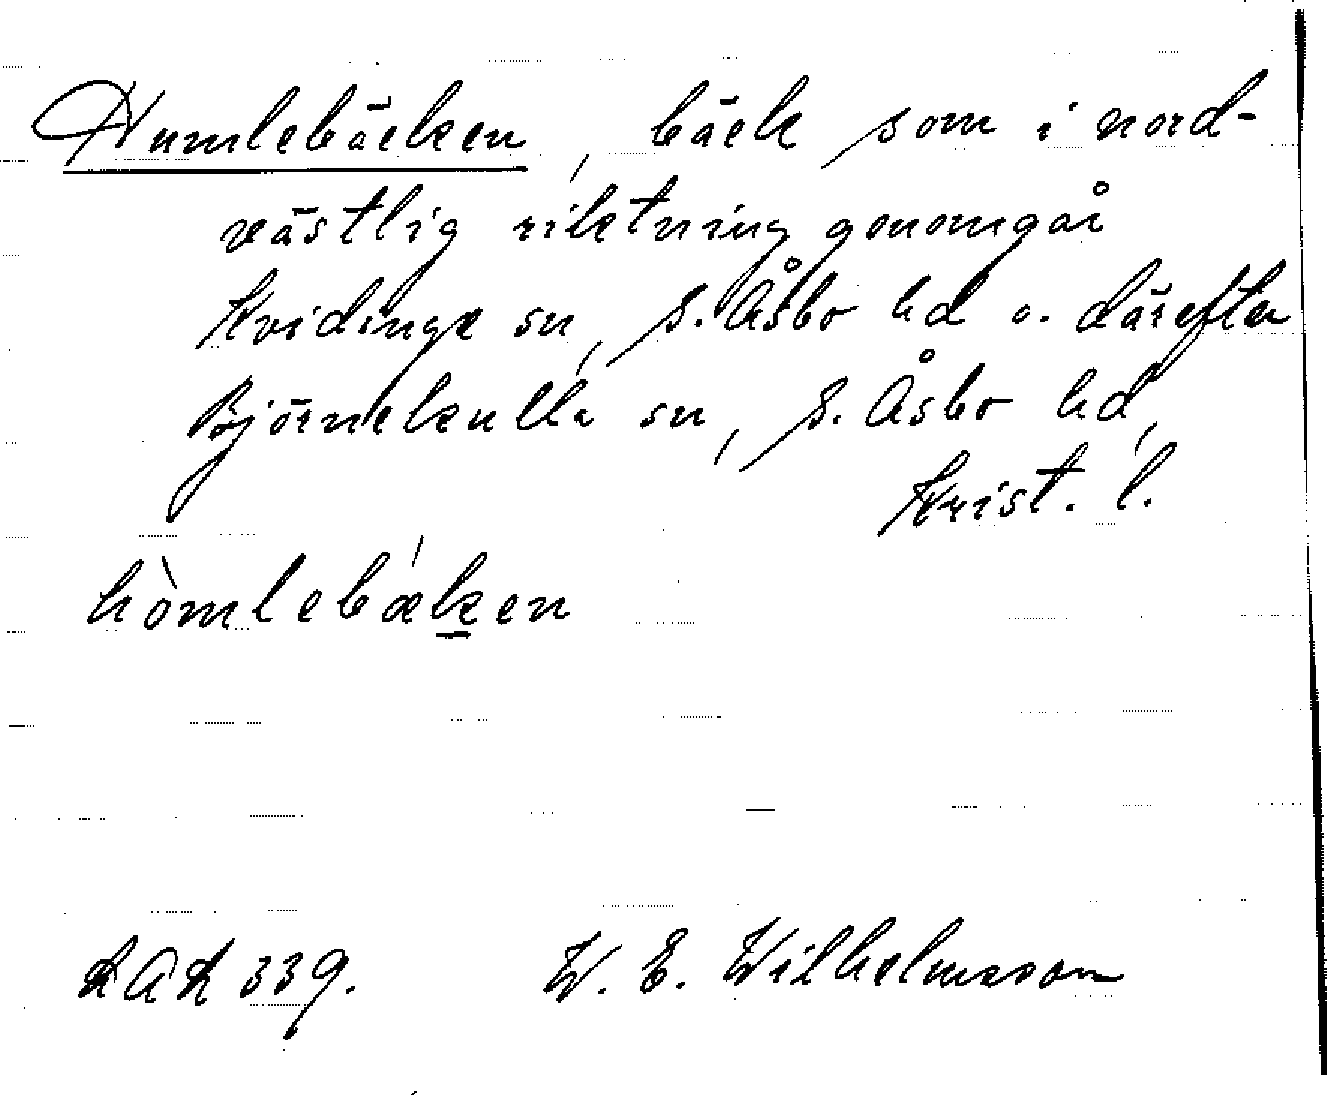 Humlebäcken, bäck som i nord-
västlig riktning genomgår
Kvidinge sn, S. Åsbo hd o. därefter
Björnekulla sn, S. Åsbo hd,
Krist. l.
hòmlebæken
LAL 339. W. E. Wilhelmsson